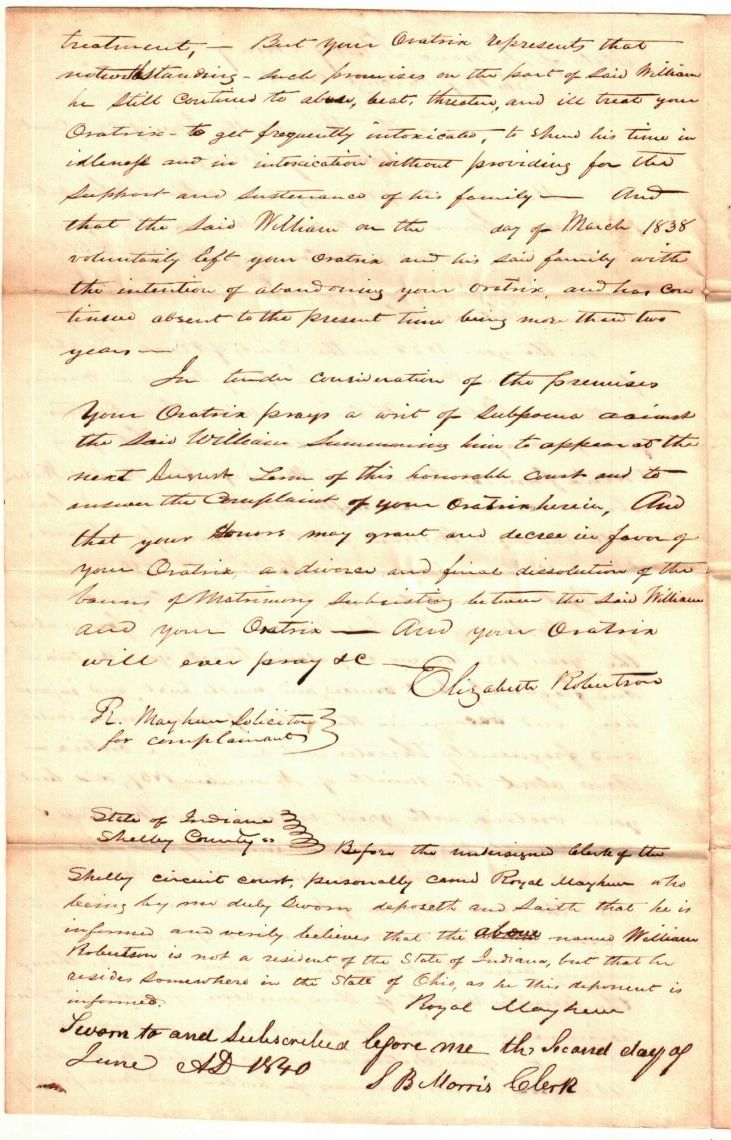 treatment, — But your Oratrix represents that
notwithstanding - such promises on the part of said William
he still contined to abuse, beat, threaten, and ill treat your
Oratrix - to get frequently intoxicated, to spend his time in
idleness and in intoxication without providing for the
support and sustenance of his family — And
that the said William on the day of March 1838
voluntarily left your oratrix and his said family with
the intention of abandoning your oratrix, and has con
tinued absent to the present time being more than two
years —
In tender consideration of the premises
Your Oratrix prays a writ of subpoena against
the said William summoning him to appear at the
next August Term of this honorable court and to
answer the Complaint of your oratrix herein, And
that your Honors may grant and decree in favor of
your Oratrix a divorce and final dissolution of the
banns of Matrimony subsisting between the said William
and your Oratrix — And your Oratrix
will ever pray &c —
Elizabeth Robertson
R. Mayhew Solicitor
for complainant
State of Indiana
Shelby County ss Before the undersigned Clerk of the
Shelby circuit court, personally came Royal Mayhew who
being by me duly sworn deposeth and saith that he is
informed and verily believes that the above named William
Robertson is not a resident of the State of Indiana, but that he
resides somewhere in the State of Ohio, as he this deponent is
informed.
Royal Mayhew
Sworn to and subscribed before me the Second day of
June AD 1840
S B Morris Clerk